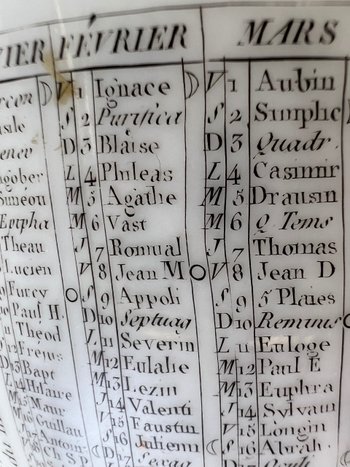 VIER FÉVRIER MARS
V 1 Ignace V 1 Aubin
S 2 Purifica S 2 Simplic
D 3 Blaise D 3 Quadr.
L 4 Phileas L 4 Casimir
M 5 Agathe M 5 Drausin
M 6 Vast M 6 Q Tems
Theau J 7 Romual J 7 Thomas
Lucien V 8 Jean M V 8 Jean D
Furcy S 9 Appoli S 9 5 Plaies
Paul H. D 10 Septuag D 10 Reminis
Théod L 11 Severin L 11 Euloge
M 12 Eulalie M 12 Paul E
Bapt M 13 Lezin M 13 Euphra
Hilaire J 14 Valenti J 14 Sylvain
Maur V 15 Faustin V 15 Longin
Guillau S 16 Julienn S 16 Abrah.
Antoin D 17